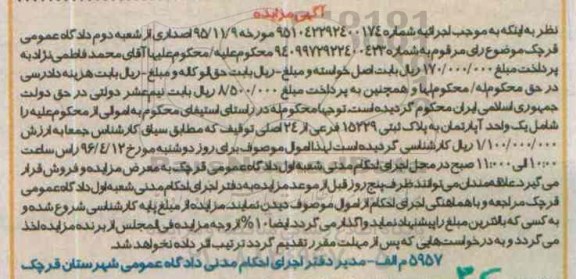 آگهی مزایده
نظر به اینکه به موجب اجرائیه شماره 9510422392400174 مورخه 95/11/9 اصداری از شعبه دوم دادگاه عمومی
قرچک موضوع رای مرقوم به شماره 9409972392200423 محکوم علیه/محکوم علیها آقای محمد فاطمی نژاد به
پرداخت مبلغ 170/000/000 ریال بابت اصل خواسته و مبلغ - ریال بابت حق الوکاله و مبلغ - ریال بابت هزینه دادرسی
در حق محکوم له/ محکوم لها و همچنین به پرداخت مبلغ 8/500/000 ریال بابت نیم عشر دولتی در حق دولت
جمهوری اسلامی ایران محکوم گردیده است، توجها محکوم له در راستای استیفای محکوم به اموالی از محکوم علیه را
شامل یک واحد آپارتمان به پلاک ثبتی 15229 فرعی از 24 اصلی توقیف که مطابق سیاق کارشناس جمعا به ارزش
1/100/000/000 ریال کارشناسی گردیده است لهذا اموال موصوف برای روز دوشنبه مورخ 96/4/12 راس ساعت
10:00 الی 11:00 صبح در محل اجرای احکام مدنی شعبه اول دادگاه عمومی قرچک به معرض مزایده و فروش قرار
می گیرد علاقه مندان می توانند ظرف پنج روز قبل از موعد مزایده به دفتر اجرای احکام مدنی شعبه اول دادگاه عمومی
قرچک مراجعه و با هماهنگی اجرای احکام از اموال موصوف دیدن نمایند. مزایده از مبلغ پایه کارشناسی شروع شده و
به کسی که بالاترین مبلغ را پیشنهاد نماید واگذار می گردد ایضا 10% از وجه مزایده فی المجلس از برنده مزایده اخذ
می گردد و به درخواست هایی که پس از مهلت مقرر تقدیم گردد ترتیب اثر داده نخواهد شد.
5957 م الف - مدیر دفتر اجرای احکام مدنی دادگاه عمومی شهرستان قرچک